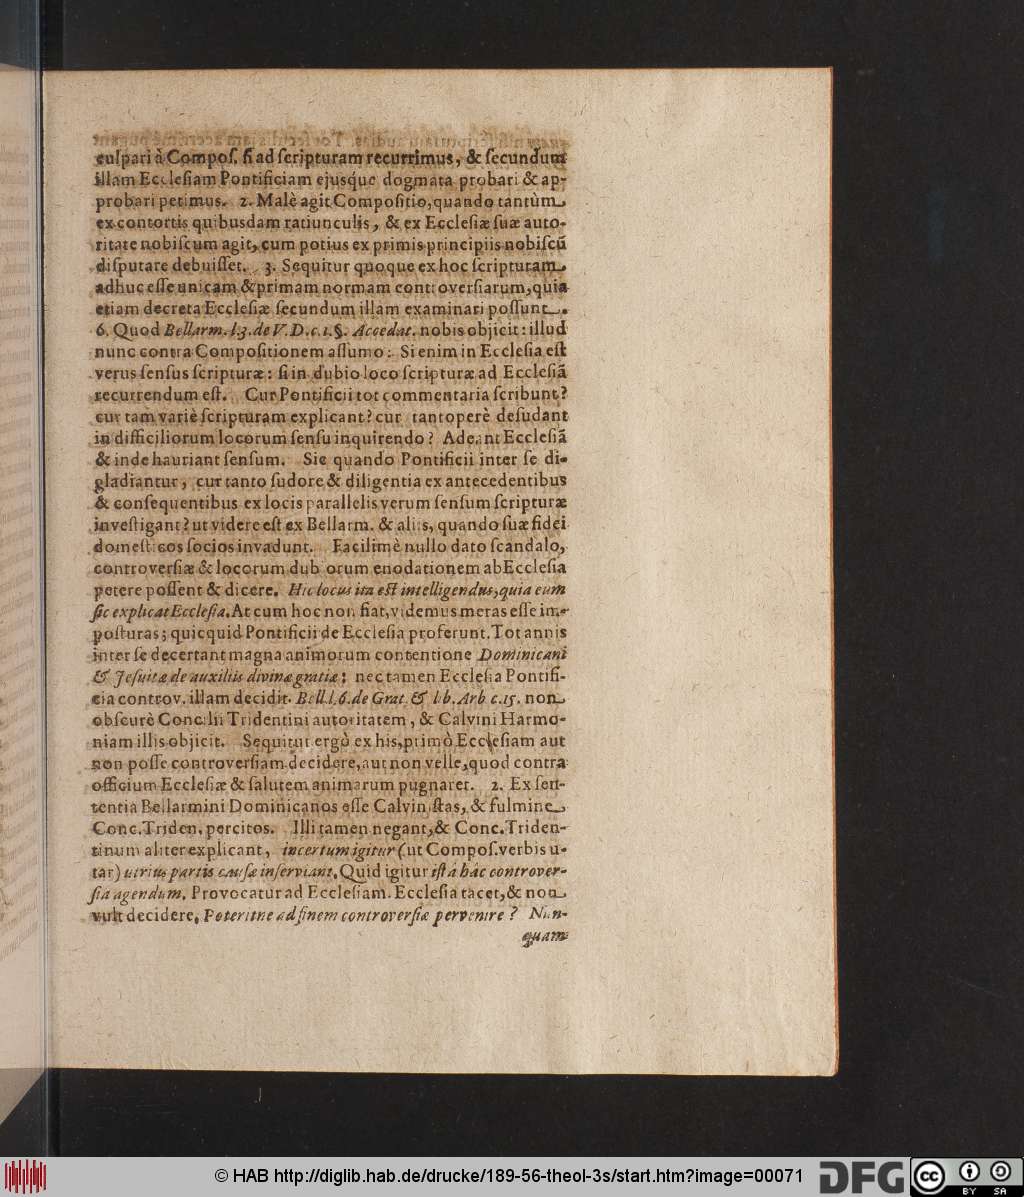 culpari à Compos. si ad scripturam recurrimus, & secundum
illam Ecclesiam Pontificiam ejusq́ue dogmata probari & ap-
probari petimus. 2. Malè agit Compositio, quando tantùm
ex contortis quibusdam ratiunculis, & ex Ecclesiæ suæ auto-
ritate nobiscum agit, cum potius ex primis principiis nobiscũ
disputare debuisset. 3. Sequitur quoque ex hoc scripturam
adhuc esse unicam & primam normam controversiarum, quia
etiam decreta Ecclesiæ secundum illam examinari possunt.
6. Quod Bellarm. l.3. de V. D. c. 1. §. Accedat. nobis objicit: illud
nunc contra Compositionem assumo: Si enim in Ecclesia est
verus sensus scripturæ: si in dubio loco scripturæ ad Ecclesiã
recurrendum est. Cur Pontificii tot commentaria scribunt?
cur tam variè scripturam explicant? cur tantoperè desudant
in difficiliorum locorum sensu inquirendo? Adeant Ecclesiã
& inde hauriant sensum. Sic quando Pontificii inter se di-
gladiantur, cur tanto sudore & diligentia ex antecedentibus
& consequentibus ex locis parallelis verum sensum scripturæ
investigant? ut videre est ex Bellarm. & aliis, quando suæ fidei
domesticos socios invadunt. Facilimè nullo dato scandalo,
controversiæ & locorum dubiorum enodationem ab Ecclesia
petere possent & dicere. Hic locus ita est intelligendus, quia eum
sic explicat Ecclesia. At cum hoc non fiat, videmus meras esse im-
posturas; quicquid Pontificii de Ecclesia proferunt. Tot annis
inter se decertant magna animorum contentione Dominicani
& Jesuitæ de auxiliis divinæ gratiæ: nec tamen Ecclesia Pontifi-
cia controv. illam decidit. Bell. l. 6. de Grat. & lib. Arb c. 15. non
obscurè Concilii Tridentini autoritatem, & Calvini Harmo-
niam illis objicit. Sequitur ergò ex his, primò Ecclesiam aut
non posse controversiam decidere, aut non velle, quod contra
officium Ecclesiæ & salutem animarum pugnaret. 2. Ex sen-
tentia Bellarmini Dominicanos esse Calvinistas, & fulmine
Conc. Triden. percitos. Illi tamen negant, & Conc. Triden-
tinum aliter explicant, incertum igitur (ut Compos. verbis u-
tar) utrius partis causæ inserviant. Quid igitur istâ hâc controver-
sia agendum. Provocatur ad Ecclesiam. Ecclesia tacet, & non
vult decidere. Poteritne ad finem controversiæ pervenire? Nun-
quam
© HAB http://diglib.hab.de/drucke/189-56-theol-3s/start.htm?image=00071
DFG
cc
BY SA